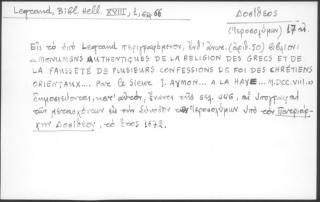 Legrand, Bibl. Hell. XVIII, 1, σελ 66
Δοσίθεος
(Ἱεροσολύμων) 17 αἰ.
Εἰς τὸ ὑπὸ Legrand περιγραφόμενον, ἐνθ' ἀνωτ. (ἀριθ. 50) βιβλίον
"MONUMENS AUTHENTIQUES DE LA RELIGION DES GRECS ET DE
LA FAUSSETÉ DE PLUSIEURS CONFESSIONS DE FOI DES CHRÉTIENS
ORIENTAUX... Par le Sieur J. AYMON... A LA HAYE... M.DCC.VIII.
δημοσιεύονται, κατ' αὐτόν, ἔναντι τῆς σελ. 446, αἱ ὑπογραφαὶ
τῶν μετασχόντων εἰς τὴν Σύνοδον Ἱεροσολύμων ὑπὸ τὸν Πατριάρ-
χην Δοσίθεον, τὸ ἔτος 1672.